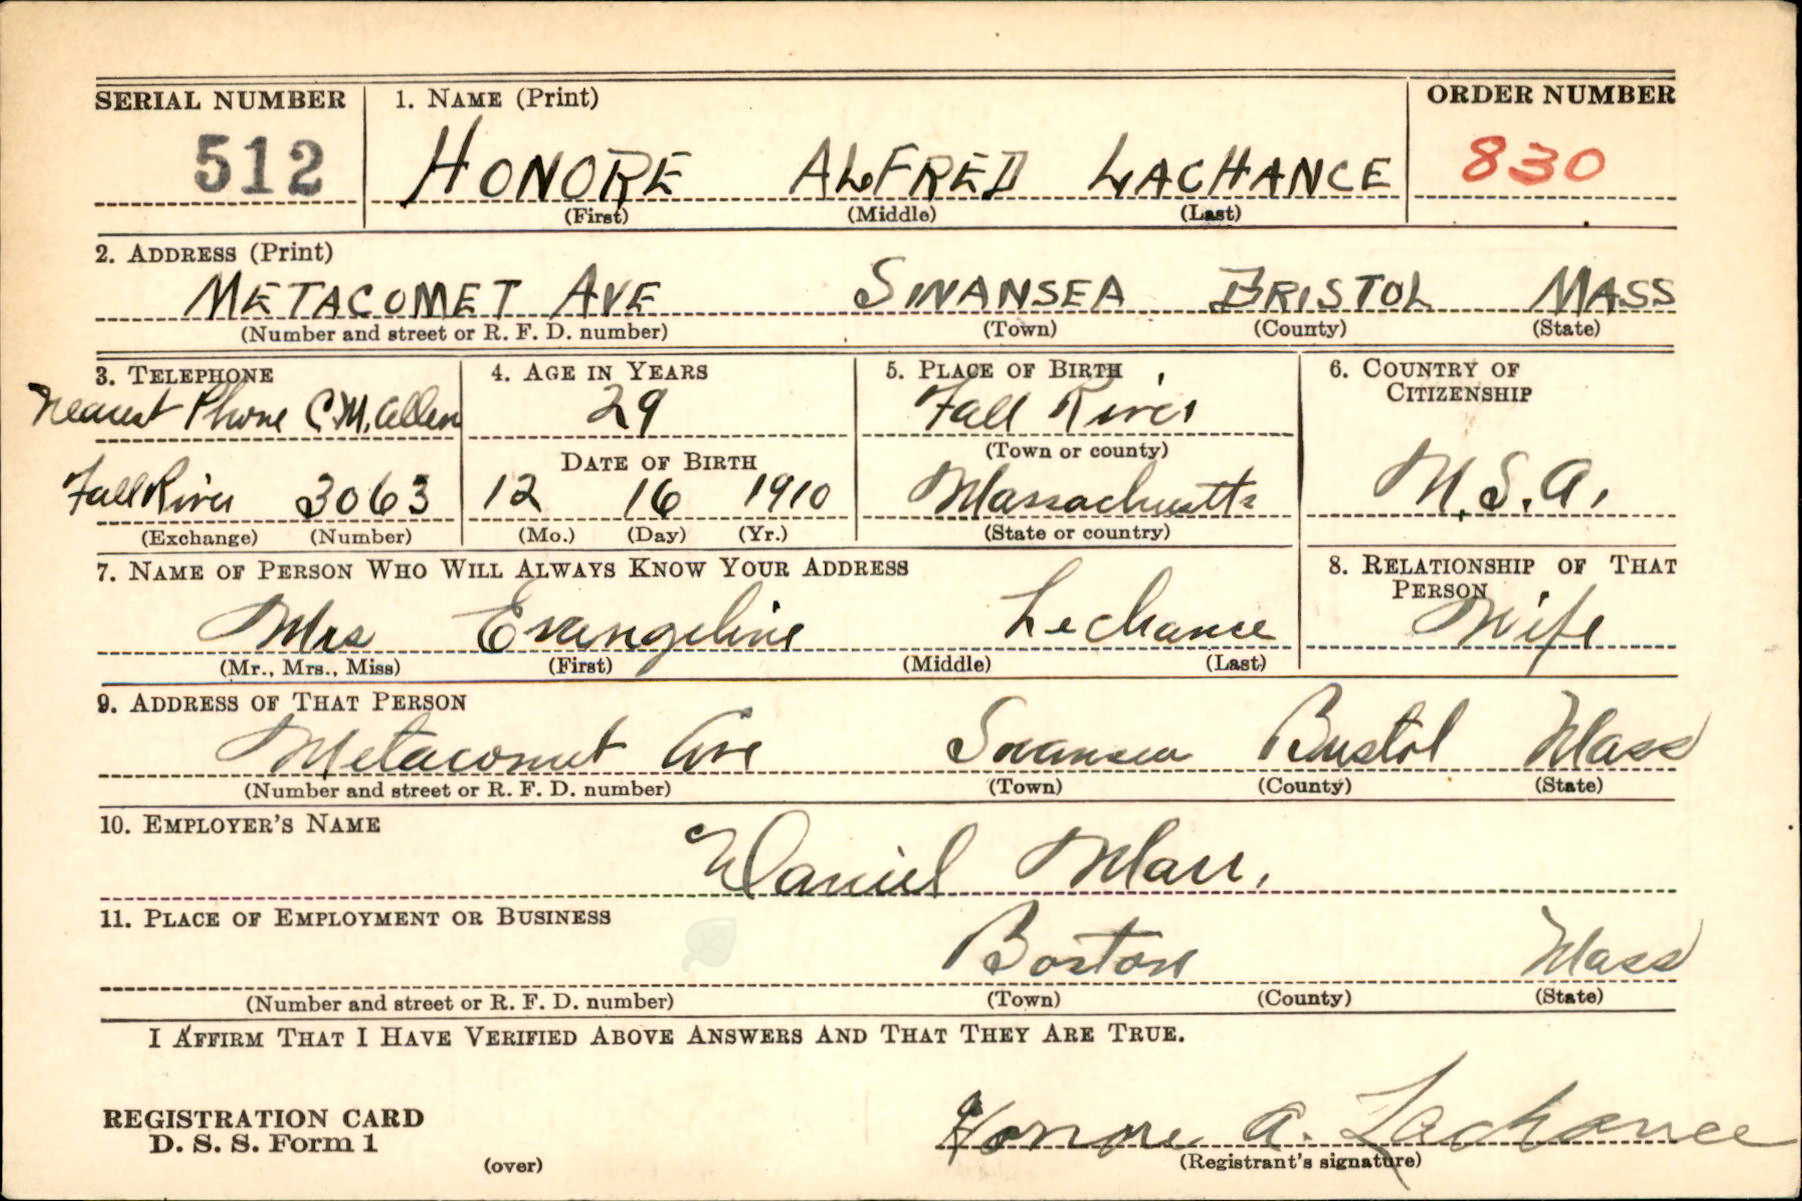 SERIAL NUMBER 1. NAME (Print) ORDER NUMBER
512 HONORE ALFRED LACHANCE 830
(First) (Middle) (Last)
2. ADDRESS (Print)
METACOMET AVE SWANSEA BRISTOL MASS
(Number and street or R. F. D. number) (Town) (County) (State)
3. TELEPHONE 4. AGE IN YEARS 5. PLACE OF BIRTH 6. COUNTRY OF
CITIZENSHIP
Nearest Phone C.M. Allen 29 Fall River
(Town or county)
DATE OF BIRTH
Fall River 3063 12 16 1910 Massachusetts U.S.A.
(Exchange) (Number) (Mo.) (Day) (Yr.) (State or country)
7. NAME OF PERSON WHO WILL ALWAYS KNOW YOUR ADDRESS 8. RELATIONSHIP OF THAT
PERSON
Mrs Evangeline Lechance Wife
(Mr., Mrs., Miss) (First) (Middle) (Last)
9. ADDRESS OF THAT PERSON
Metacomet Ave Swansea Bristol Mass
(Number and street or R. F. D. number) (Town) (County) (State)
10. EMPLOYER'S NAME
Daniel Marr.
11. PLACE OF EMPLOYMENT OR BUSINESS
Boston Mass
(Number and street or R. F. D. number) (Town) (County) (State)
I AFFIRM THAT I HAVE VERIFIED ABOVE ANSWERS AND THAT THEY ARE TRUE.
REGISTRATION CARD
D. S. S. Form 1 Honore A. Lachance
(over) (Registrant's signature)